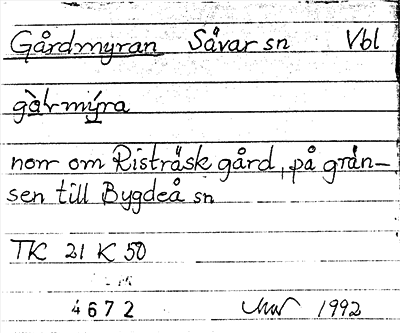 Gårdmyran Sävar sn Vbl
norr om Risträsk gård, på grän-
sen till Bygdeå sn
TK 21 K 50
4672 1992